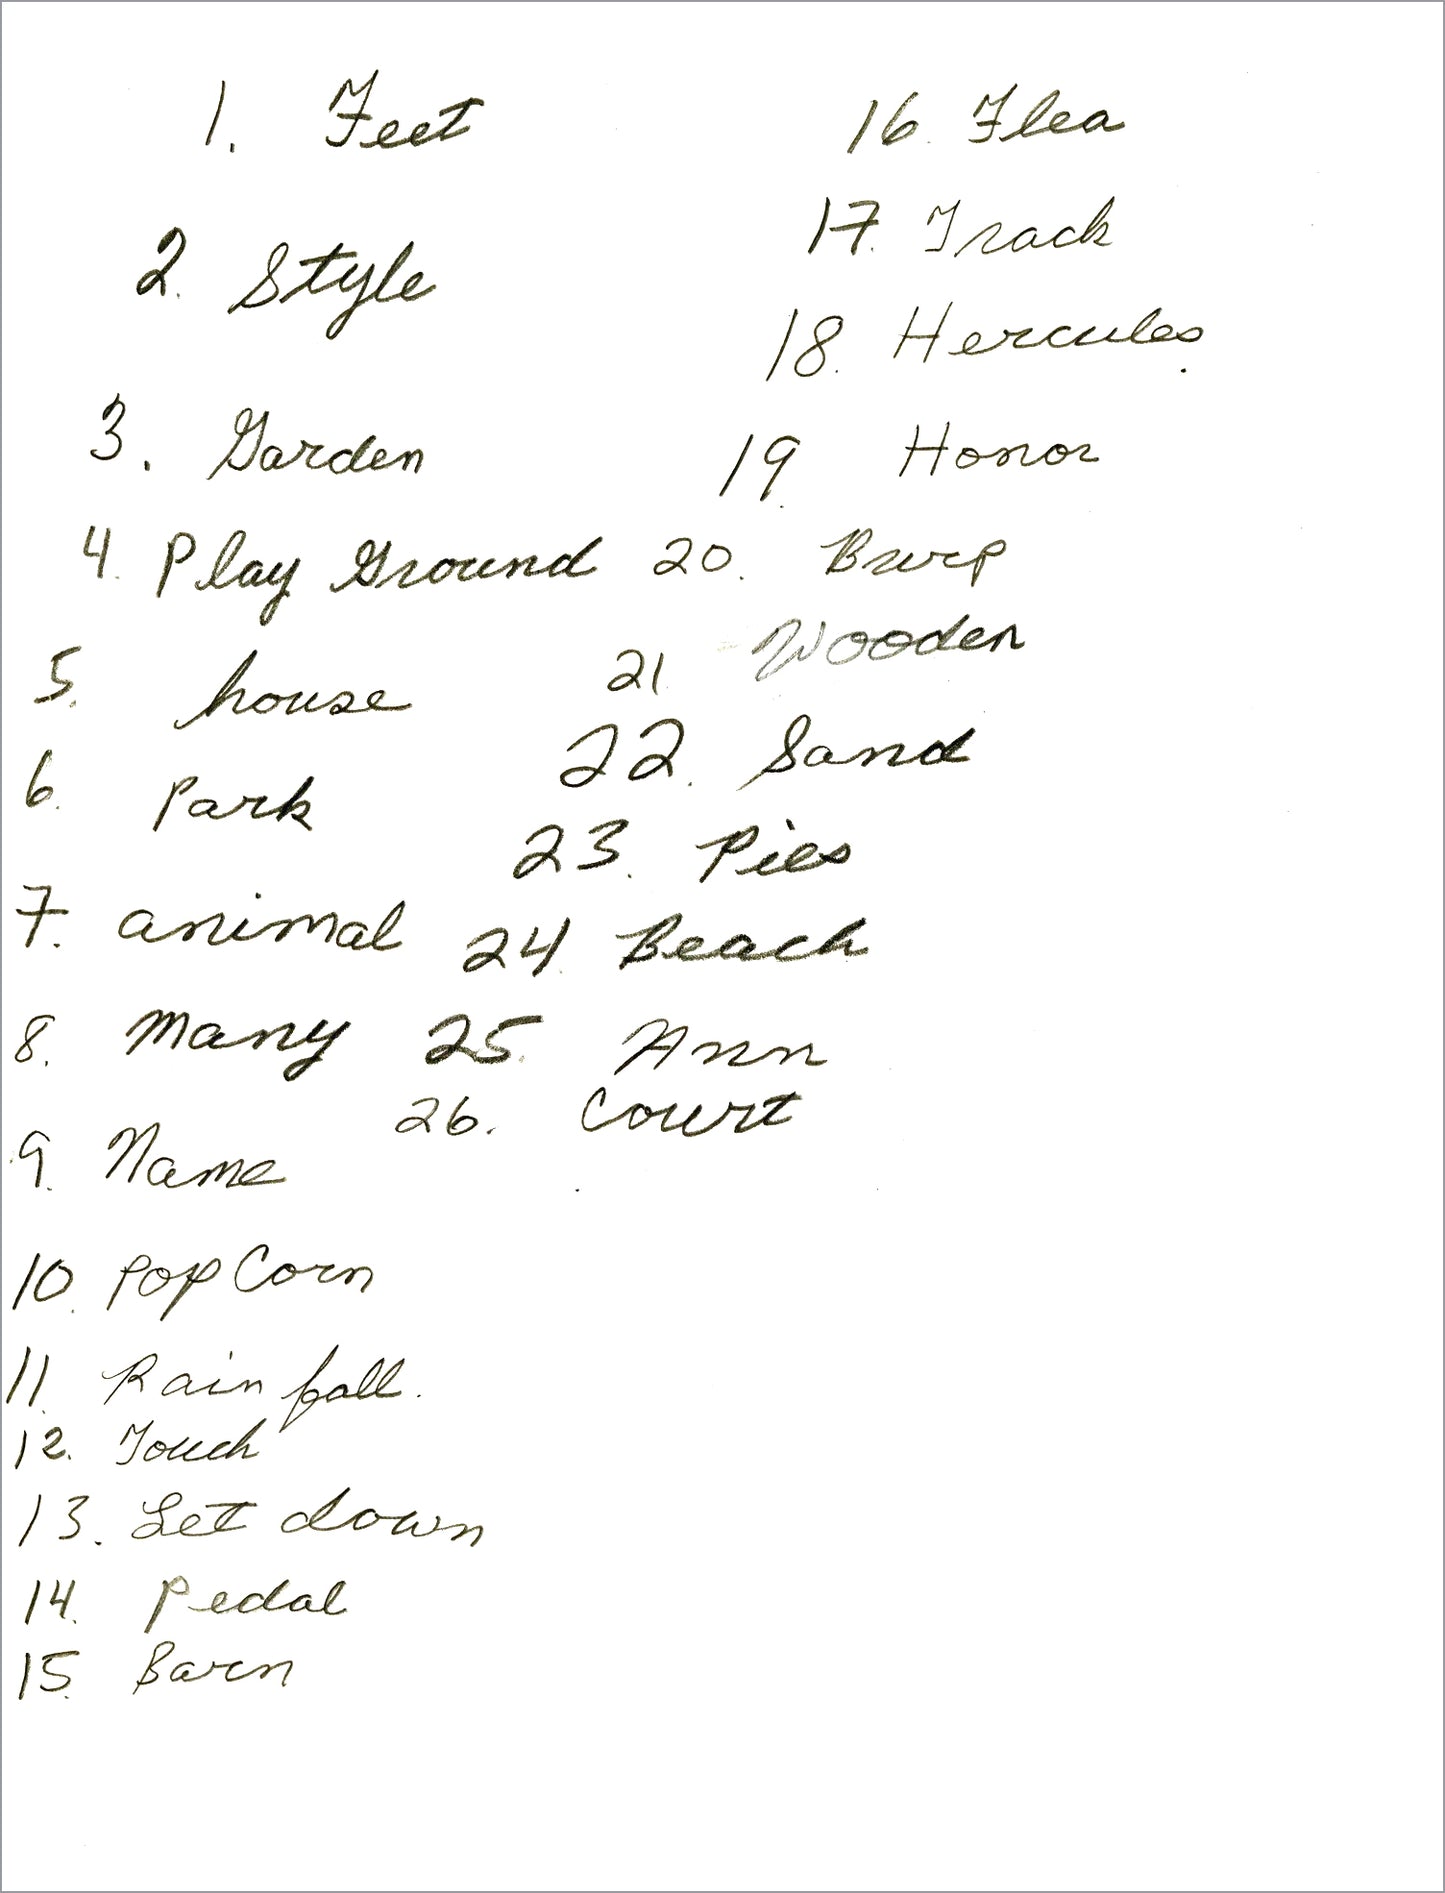 1. Feet
2. Style
3. Garden
4. Play Ground
5. house
6. Park
7. animal
8. Many
9. Name
10. Pop Corn
11. Rain fall.
12. Touch
13. Let down
14. Pedal
15. Barn
16. Flea
17. Track
18. Hercules.
19. Honor
20. Burp
21. Wooden
22. Sand
23. Pies
24. Beach
25. Ann
26. Court